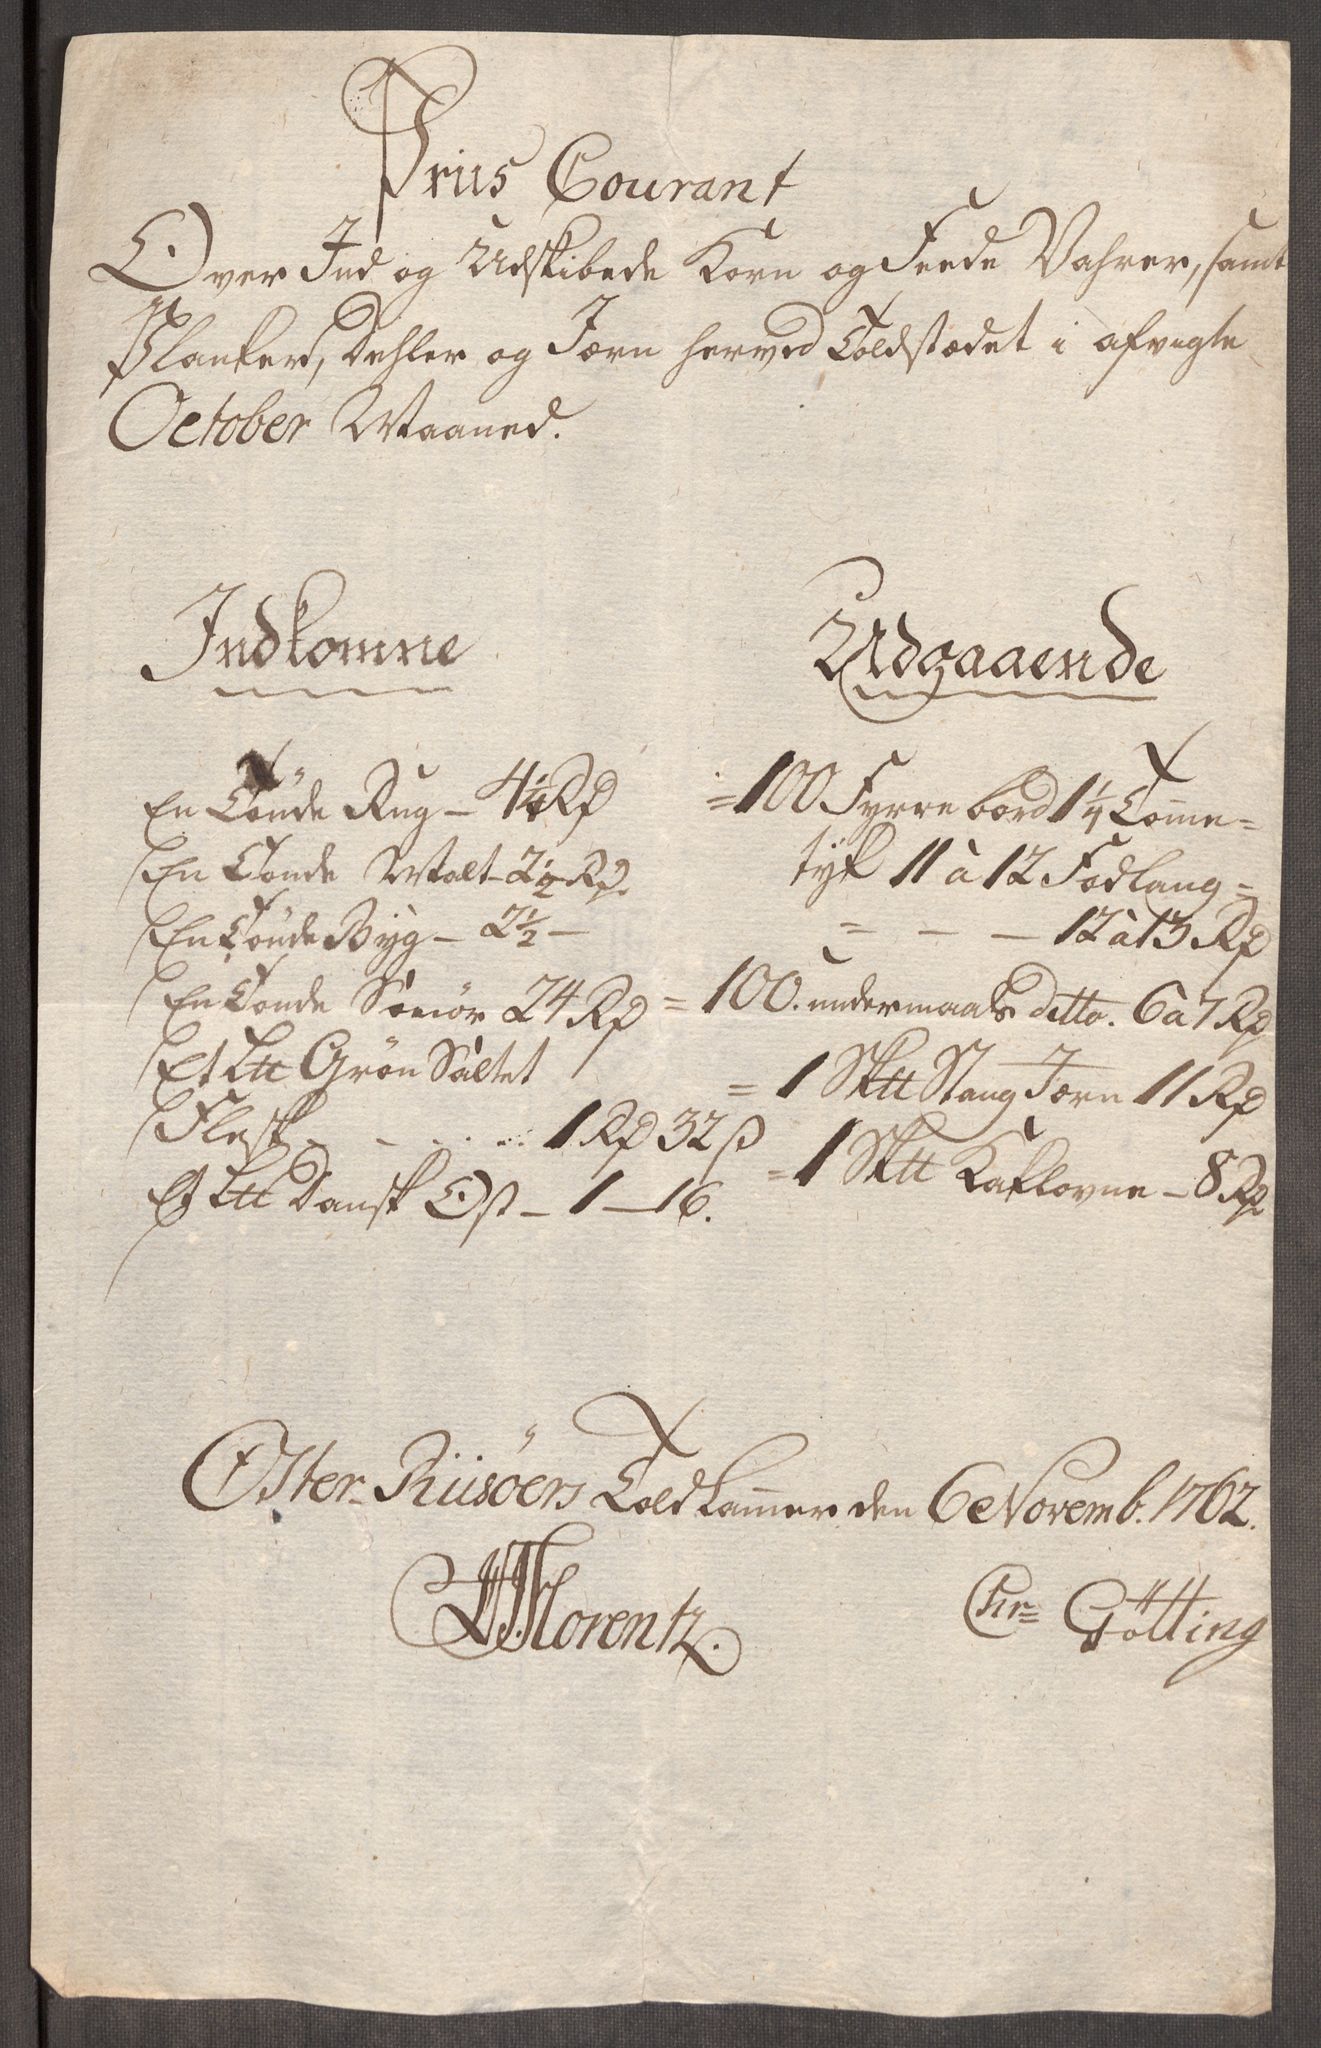 Priis Courant
Over Ind og Udskibede Korn og Feede Vahrer, samt
Planker, Dehler og Jern herved Toldstædet i afvigte
October Maaned.
Indkomne
En Tönde Rug - 4 1/4 Rd
En Tönde Malt - 2 1/2 Rd.
En Tönde Byg - 2 1/2 -
En Tonde Smiör 24 Rd
Et Ltt Grön Saltet
Flesk - - - - 1 Rd 32 ß
Et Ltt Dansk Ost - 1 - 16.
Udgaaende
= 100 Fyrre bord 1 1/4 Tomme=
tyk 11 à 12 Fod lang =
= - - 12 à 13 Rd
= 100. undermaals ditto. 6 à 7 Rd
= 1 Sktt Stang Jern 11 Rd
= 1 Sktt Kaklovne - 8 Rd
Öster-Riisöers Toldkammer den 6 Novemb. 1762.
Lorentz.
Chr= Götting